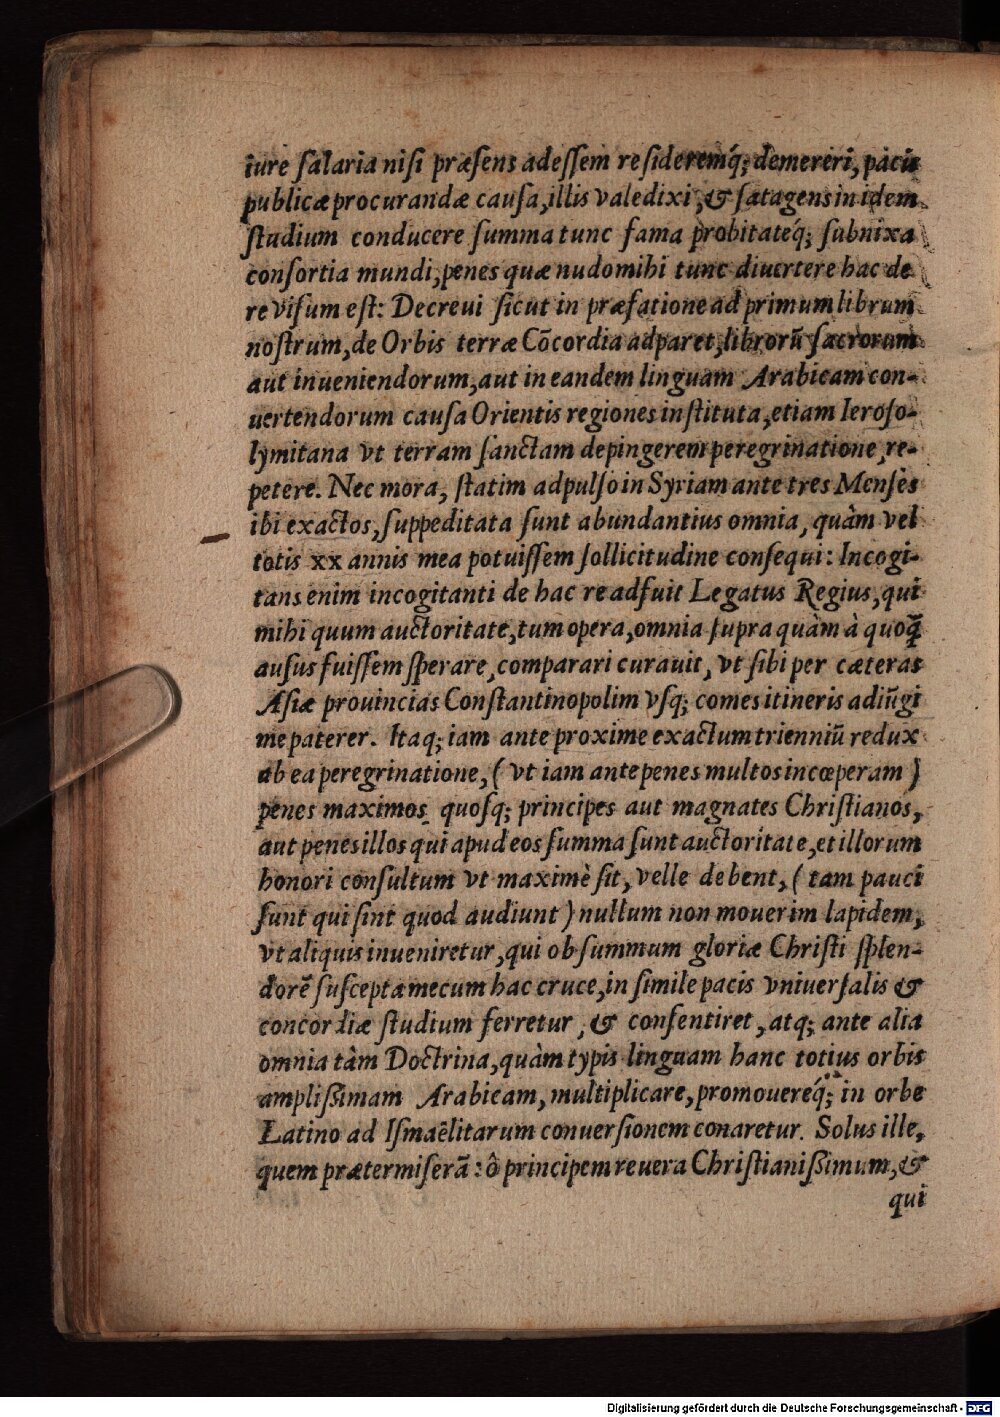 iure salaria nisi præsens adessem resideremq́; demereri, pacis
publicæ procurandæ causa, illis valedixi, & satagens in idem
studium conducere summa tunc fama probitateq́; subnixa
consortia mundi, penes quæ nudo mihi tunc diuertere hac de
re visum est: Decreui sicut in præfatione ad primum librum
nostrum, de Orbis terræ Cōcordia adparet, librorū sacrorum
aut inueniendorum, aut in eandem linguam Arabicam con-
uertendorum causa Orientis regiones instituta, etiam Ieroso-
lymitana vt terram sanctam depingerem peregrinatione, re-
petere. Nec mora, statim adpulso in Syriam ante tres Menses
ibi exactos, suppeditata sunt abundantius omnia, quàm vel
totis xx annis mea potuissem sollicitudine consequi: Incogi-
tans enim incogitanti de hac re adfuit Legatus Regius, qui
mihi quum auctoritate, tum opera, omnia supra quàm à quoq̃
ausus fuissem sperare, comparari curauit, vt sibi per cæteras
Asiæ prouincias Constantinopolim vsq; comes itineris adiūgi
me paterer. Itaq; iam ante proxime exactum trienniū redux
ab ea peregrinatione, ( vt iam ante penes multos incœperam )
penes maximos quosq; principes aut magnates Christianos,
aut penes illos qui apud eos summa sunt auctoritate, et illorum
honori consultum vt maximè sit, velle debent, ( tam pauci
sunt qui sint quod audiunt ) nullum non mouerim lapidem,
vt aliquis inueniretur, qui ob summum gloriæ Christi splen-
dorē suscepta mecum hac cruce, in simile pacis vniuersalis &
concordiæ studium ferretur, & consentiret, atq; ante alia
omnia tàm Doctrina, quàm typis linguam hanc totius orbis
amplißimam Arabicam, multiplicare, promouereq́; in orbe
Latino ad Ismaēlitarum conuersionem conaretur. Solus ille,
quem prætermiserā: ô principem reuera Christianißimum, &
qui
Digitalisierung gefördert durch die Deutsche Forschungsgemeinschaft - DFG